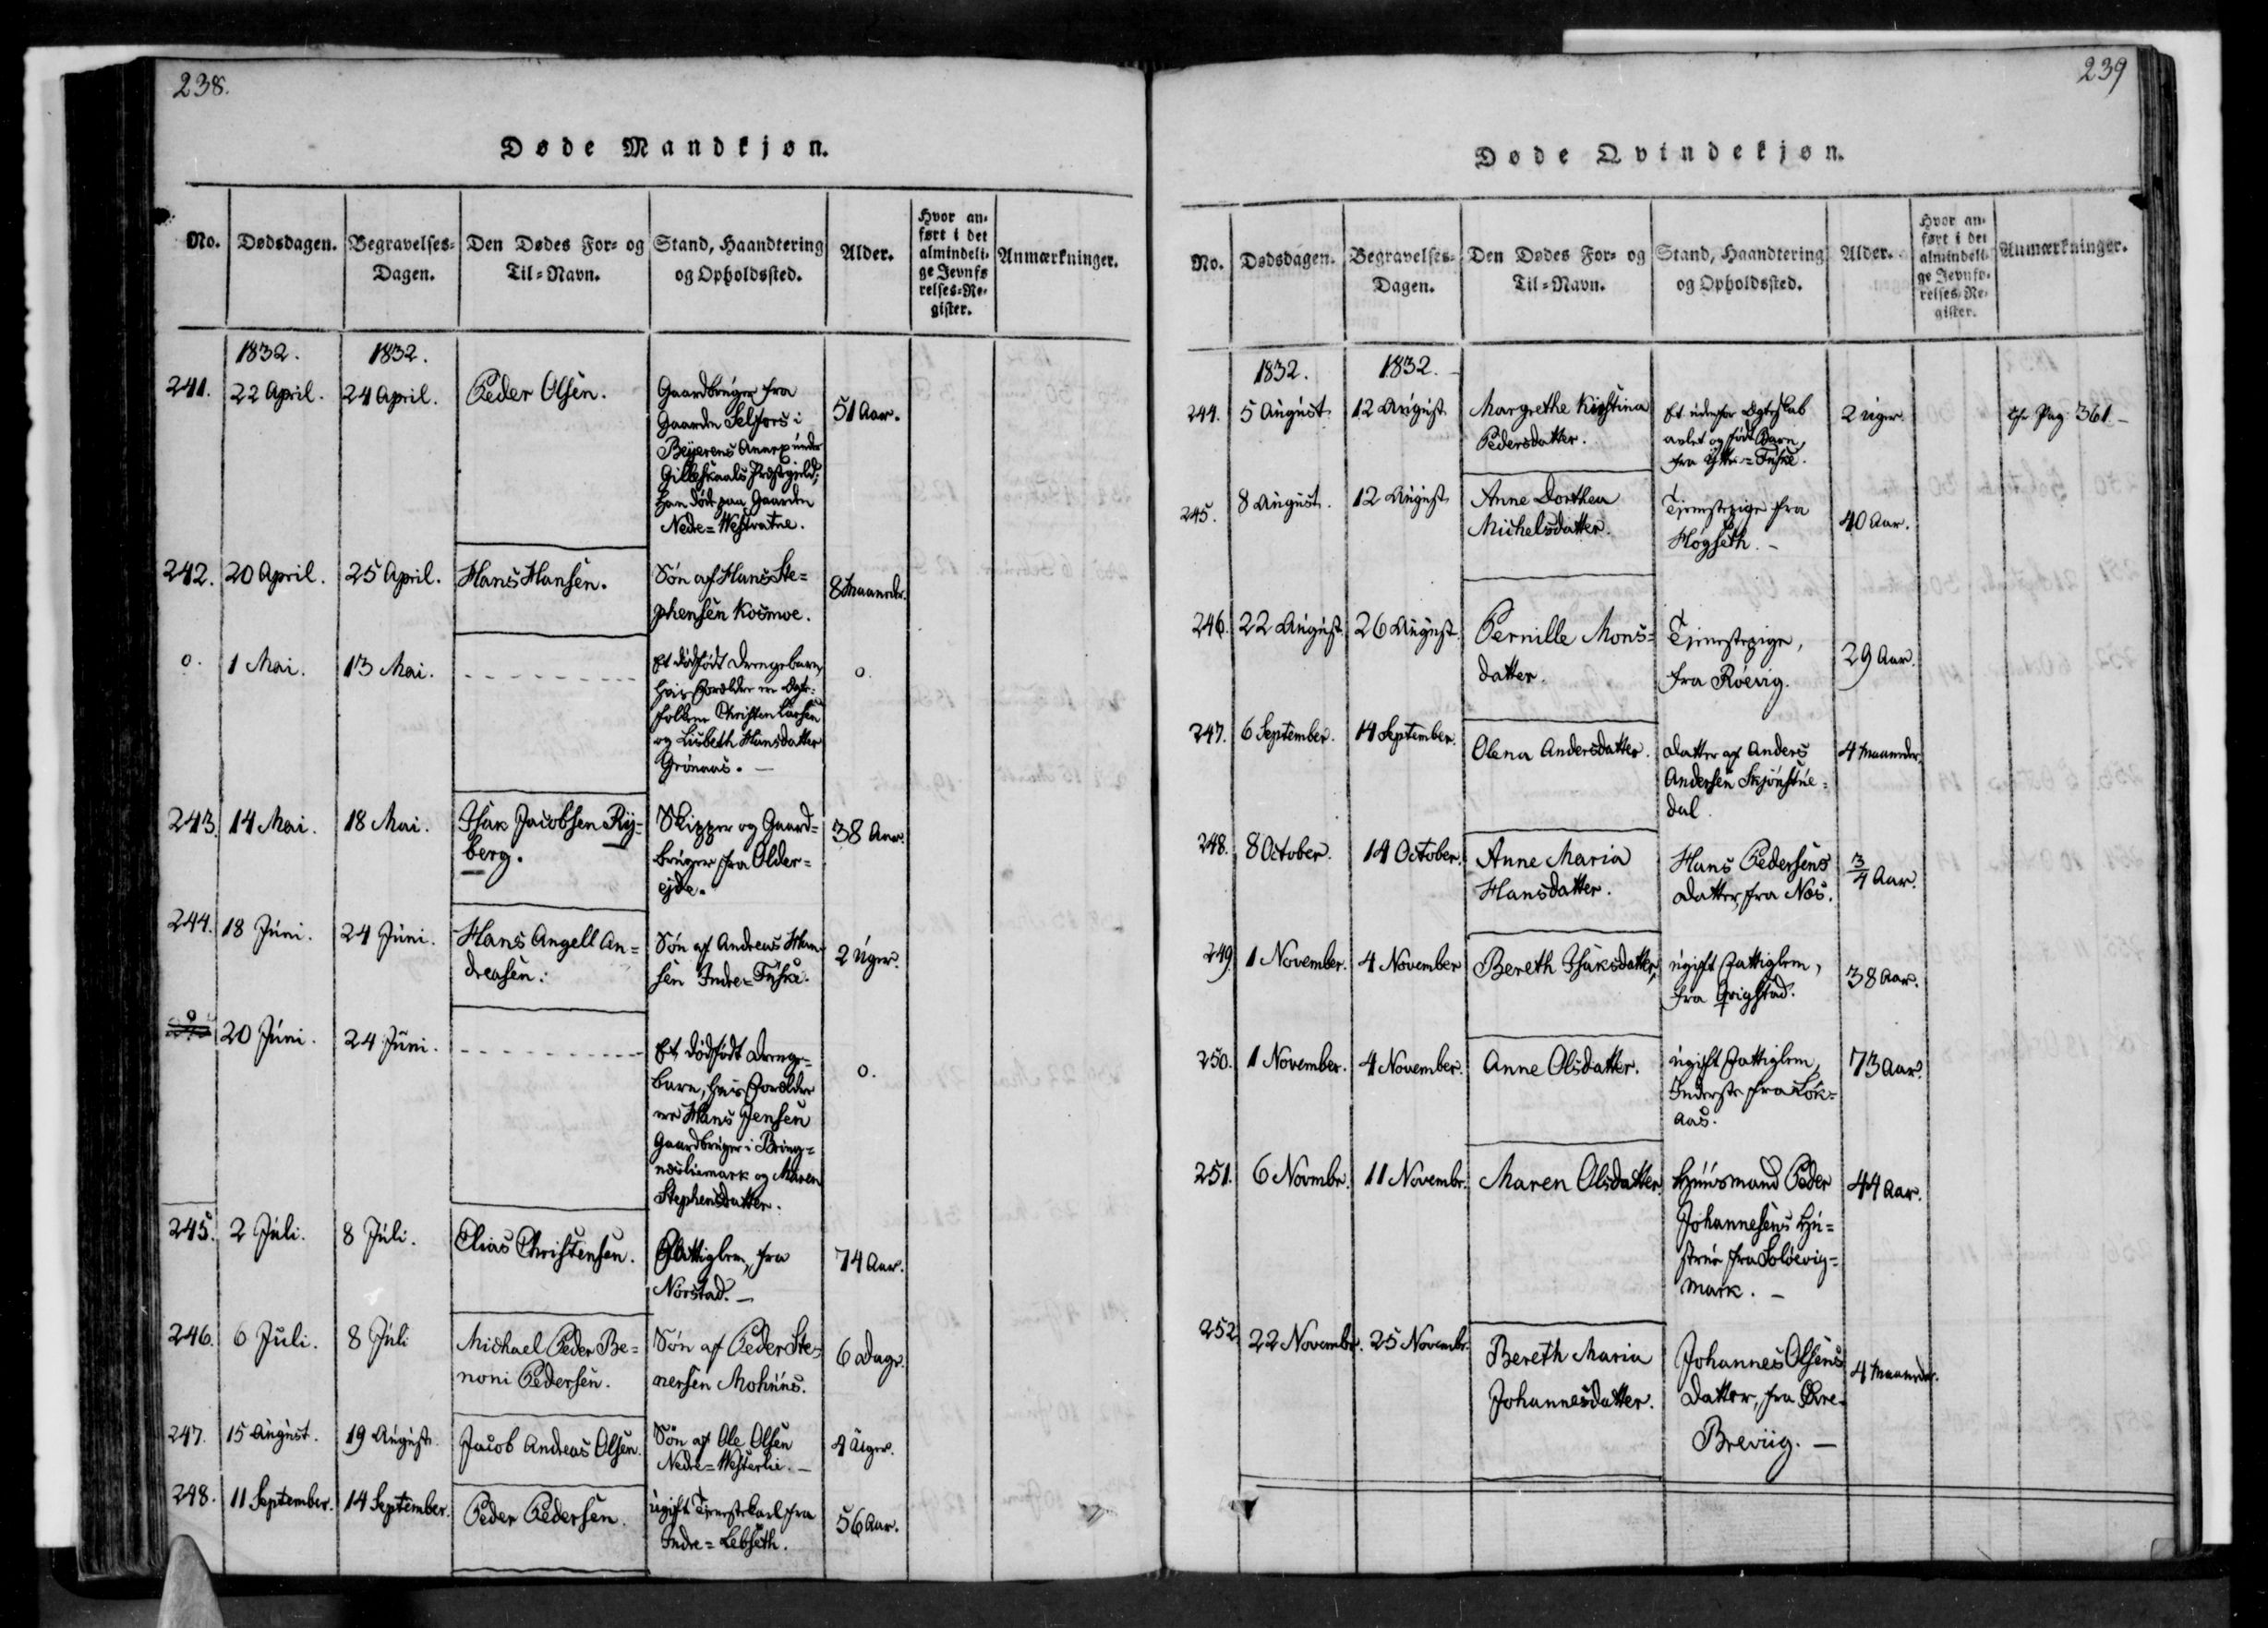 238.
Døde Mandkjøn.
No. Dødsdagen. Begravelses-Dagen. Den Dødes For- og Til-Navn. Stand, Haandtering og Opholdssted. Alder. Hvor anført i det almindelige Jevnførelses-Register. Anmærkninger.
1832. 1832.
241. 22 April. 24 April. Peder Olsen. Gaardbruger fra
Gaarden Selfors i
Beyerens Annex under
Gilleskaals Præstegield;
han døde paa Gaarden
Nedre=Westvatne.
51 Aar.
242. 20 April. 25 April. Hans Hansen. Søn af Hans Ste=
phensen Kosmoe.
8 Maaneder.
0. 1 Mai. 13 Mai. Et dødfødt Drengebarn,
hvis Forældre ere Ægte=
folkene Christen Larsen
og Lisbeth Hansdatter
Grønaas. —
0.
243. 14 Mai. 18 Mai. Isak Jacobsen Ry=
berg.
Skipper og Gaard=
bruger fra Alder=
ejde.
38 Aar.
244. 18 Juni. 24 Juni. Hans Angell An=
dreasen.
Søn af Andreas Han=
sen Indre=Fuske.
2 Uger.
0 20 Juni. 24 Juni. Et dødfødt Drenge=
barn, hvis Forældre
ere Hans Jensen
Gaardbruger i
og Maren
Stephensdatter.
0.
245. 2 Juli. 8 Juli. Elias Christensen. Fattiglem, fra
Norstad. —
74 Aar.
246. 6 Juli. 8 Juli Michael Peder Be=
noni Pedersen.
Søn af Peder Ste=
nersen Mohuus.
6 Dage.
247. 15 August. 19 August. Jacob Andreas Olsen. Søn af Ole Olsen
Nedre=Westerlie. —
4 Uger.
248. 11 September. 14 September. Peder Pedersen. ugift Tjenestekarl fra
Indre=Lebseth.
56 Aar.
239
Døde Qvindekjøn.
No. Dødsdagen. Begravelses-Dagen. Den Dødes For- og Til-Navn. Stand, Haandtering og Opholdssted. Alder. Hvor anført i det almindelige Jevnførelses-Register. Anmærkninger.
1832. 1832.
244. 5 August. 12 August. Margrethe Kirstina
Pedersdatter.
Et udenfor Ægteskab
avlet og født Barn,
fra Ytter=Fuske.
2 Uger. Cfr Pag. 361 —
245. 8 August. 12 August. Anne Dorthea
Michelsdatter.
Tjenestepige fra
Høgseth. —
40 Aar.
246. 22 August. 26 August. Pernille Mons=
datter.
Tjenestepige,
fra Røevig.
29 Aar.
247. 6 September. 14 September. Olena Andersdatter. Datter af Anders
Andersen Skjønstue=
dal.
4 Maaneder.
248. 8 October. 14 October. Anne Maria
Hansdatter.
Hans Pedersens
Datter, fra Næs.
3/4 Aar.
249. 1 November. 4 November Bereth Isaksdatter, ugift Fattiglem,
fra
38 Aar.
250. 1 November. 4 November. Anne Olsdatter. ugift Fattiglem,
Inderste fra Løk=
aas.
73 Aar.
251. 6 Novmbr. 11 Novembr. Maren Olsdatter. Huusmand Peder
Johannesens Hu=
strue fra Soløevig=
mark. —
44 Aar.
252. 22 Novembr. 25 Novembr. Bereth Maria
Johannesdatter.
Johannes Olsens
Datter, fra Øvre=
Breviig. —
4 Maaneder.